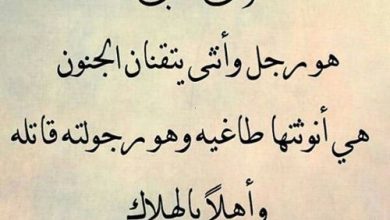 هو رجل وأنثى يتقنان الجنون
هي أنوثتها طاغيه وهو رجولته قاتله
وأهلاً بالهلاك